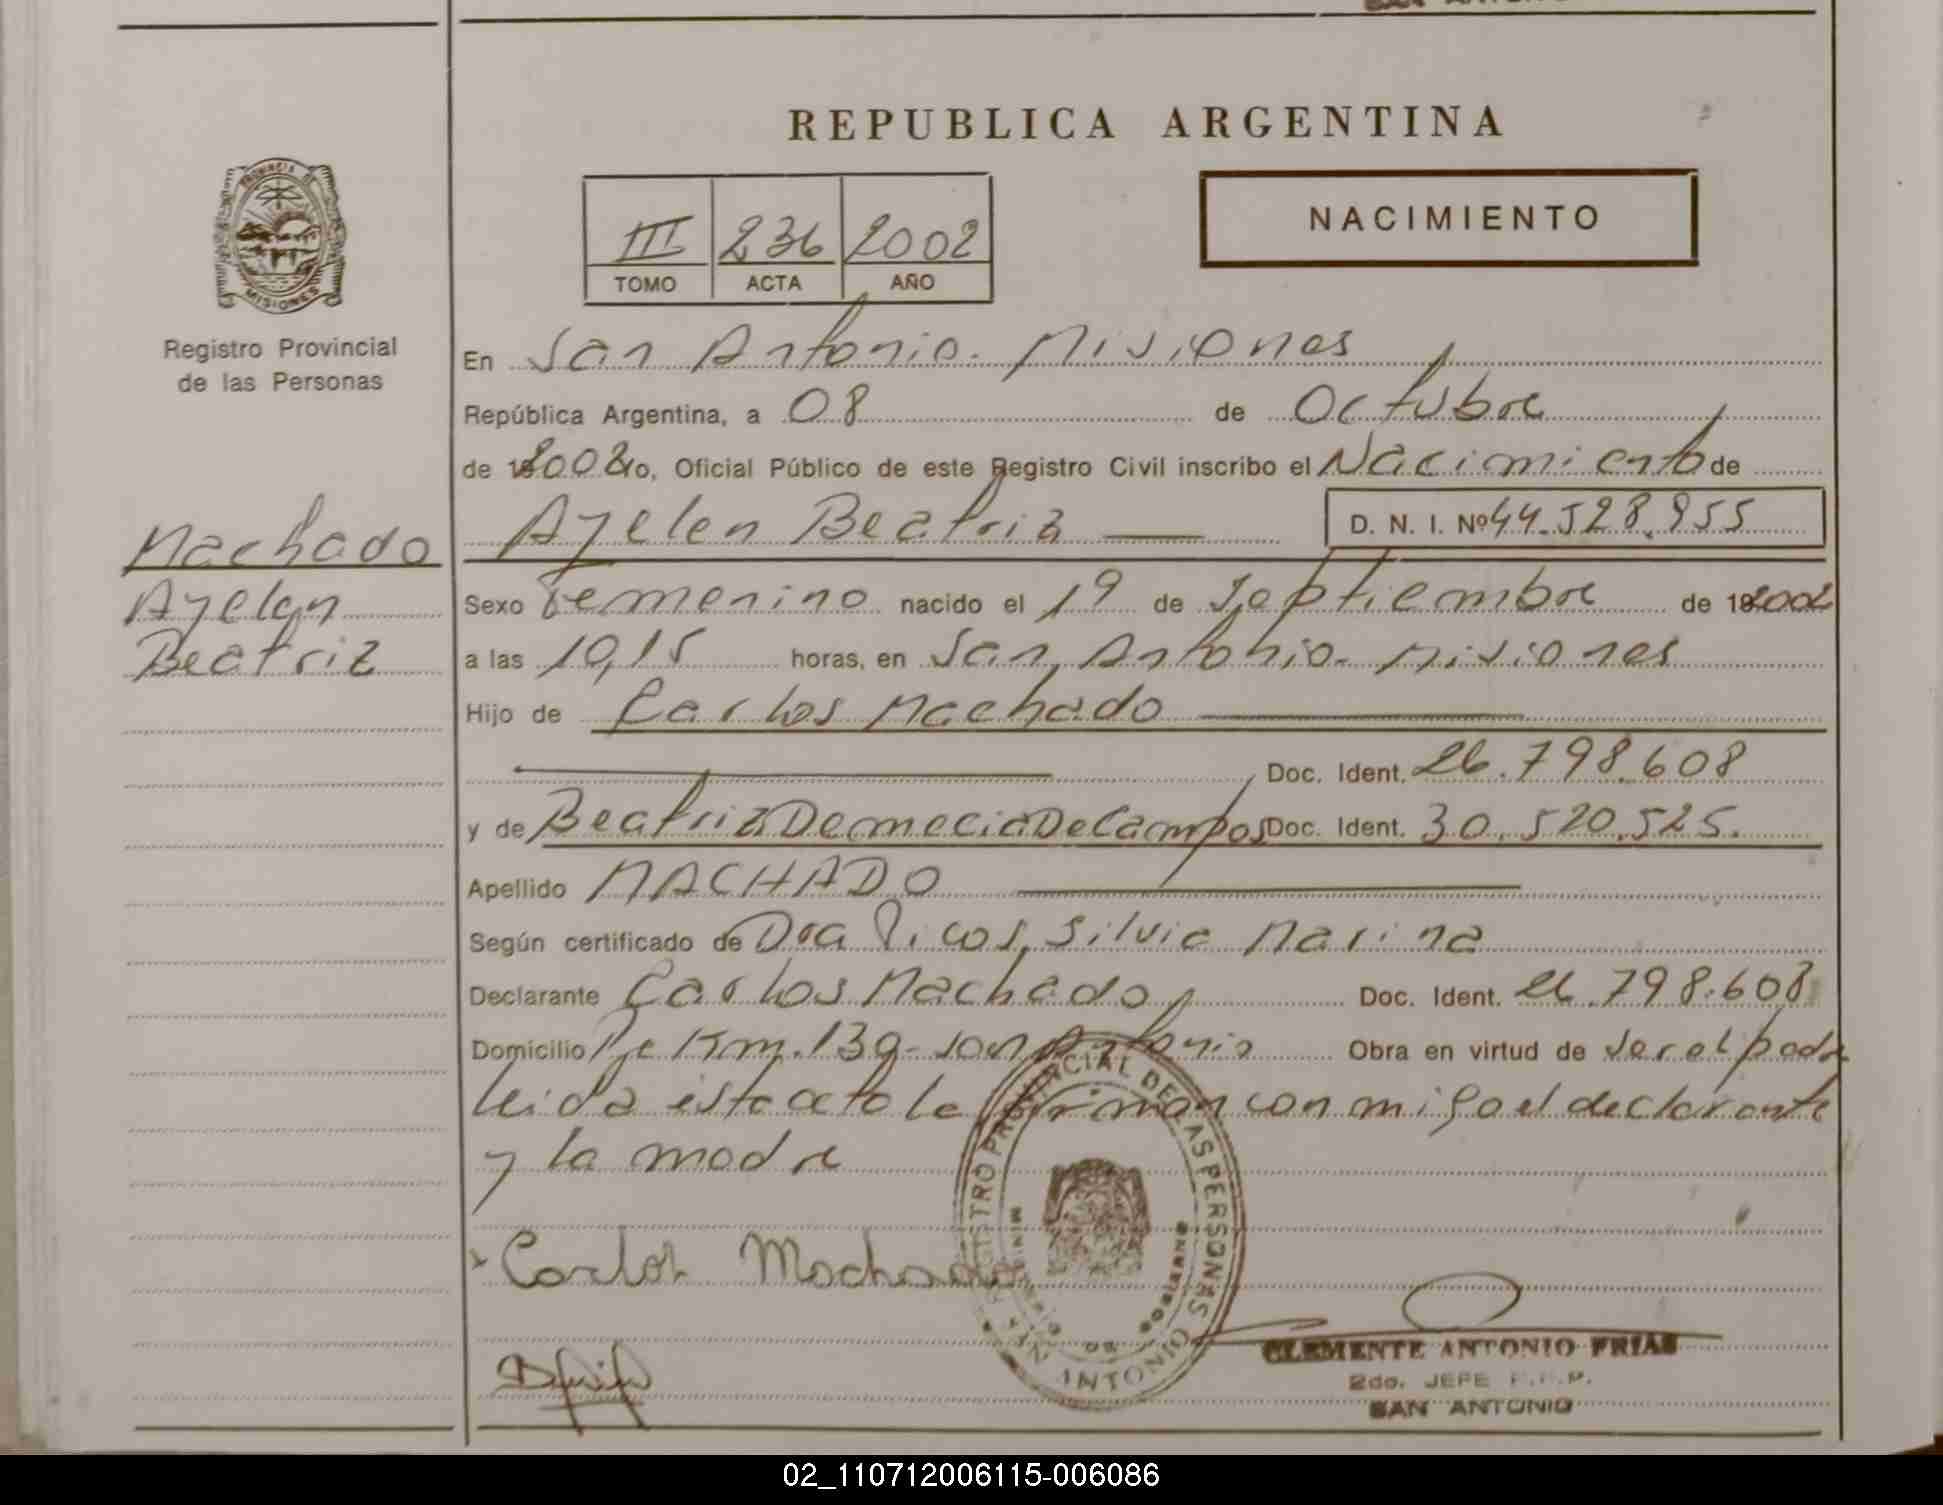 SAN ANTONIO
REPUBLICA ARGENTINA
PROVINCIA DE
MISIONES
III 236 2002
TOMO ACTA AÑO
NACIMIENTO
Registro Provincial
de las Personas
En San Antonio. Misiones
República Argentina, a 08 de Octubre
de 2002 yo, Oficial Público de este Registro Civil inscribo el Nacimiento de
Machado
Ayelen Beatriz D. N. I. Nº 44.528.955
Ayelen
Sexo Femenino nacido el 19 de Septiembre de 2002
Beatriz
a las 10,15 horas, en San Antonio. Misiones
Hijo de Carlos Machado
Doc. Ident. 26.798.608
y de Beatriz Demecia De Campos Doc. Ident. 30.520.525.
Apellido MACHADO
Según certificado de Dra Picos, Silvia Marina
Declarante Carlos Machado Doc. Ident. 26.798.608
Domicilio Pje Km. 139 - San Antonio Obra en virtud de ser el padre
leida esta acta la firman con migo el declarante
y la madre
Carlos Machado
REGISTRO PROVINCIAL DE LAS PERSONAS
SAN ANTONIO
CLEMENTE ANTONIO FRIAS
2do. JEFE R.P.P.
SAN ANTONIO
02_110712006115-006086